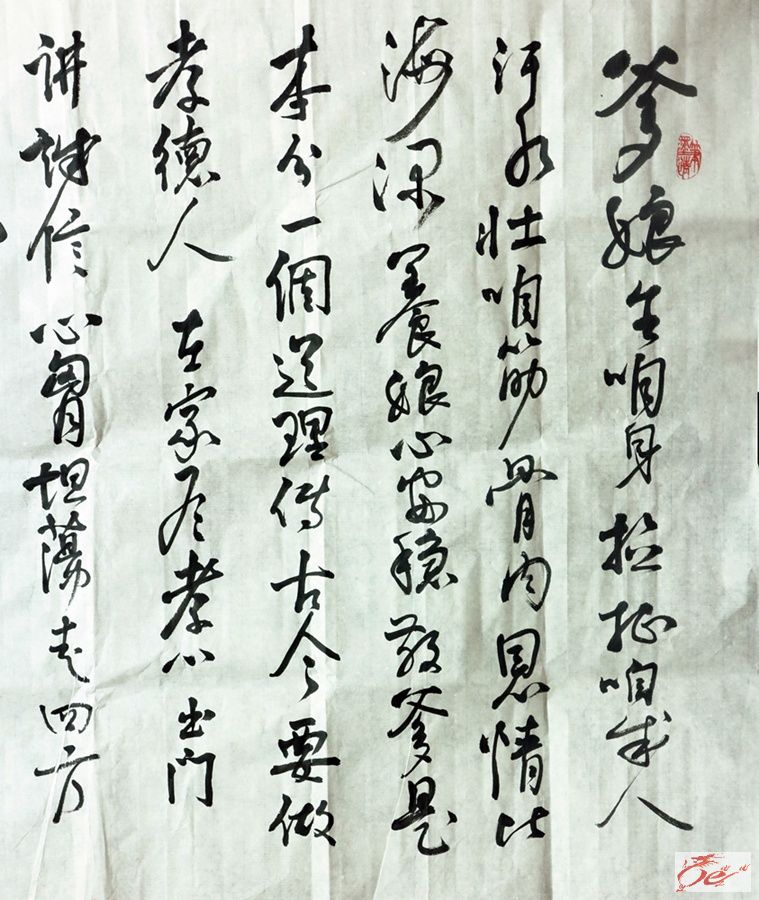 爹娘生咱身拉扯咱成人
汗水壮咱筋骨肉恩情比
海深養娘心安穏敬爹是
本分一個道理傳古今要做
孝德人在家尽孝心出门
讲诚信心胷坦蕩走四方